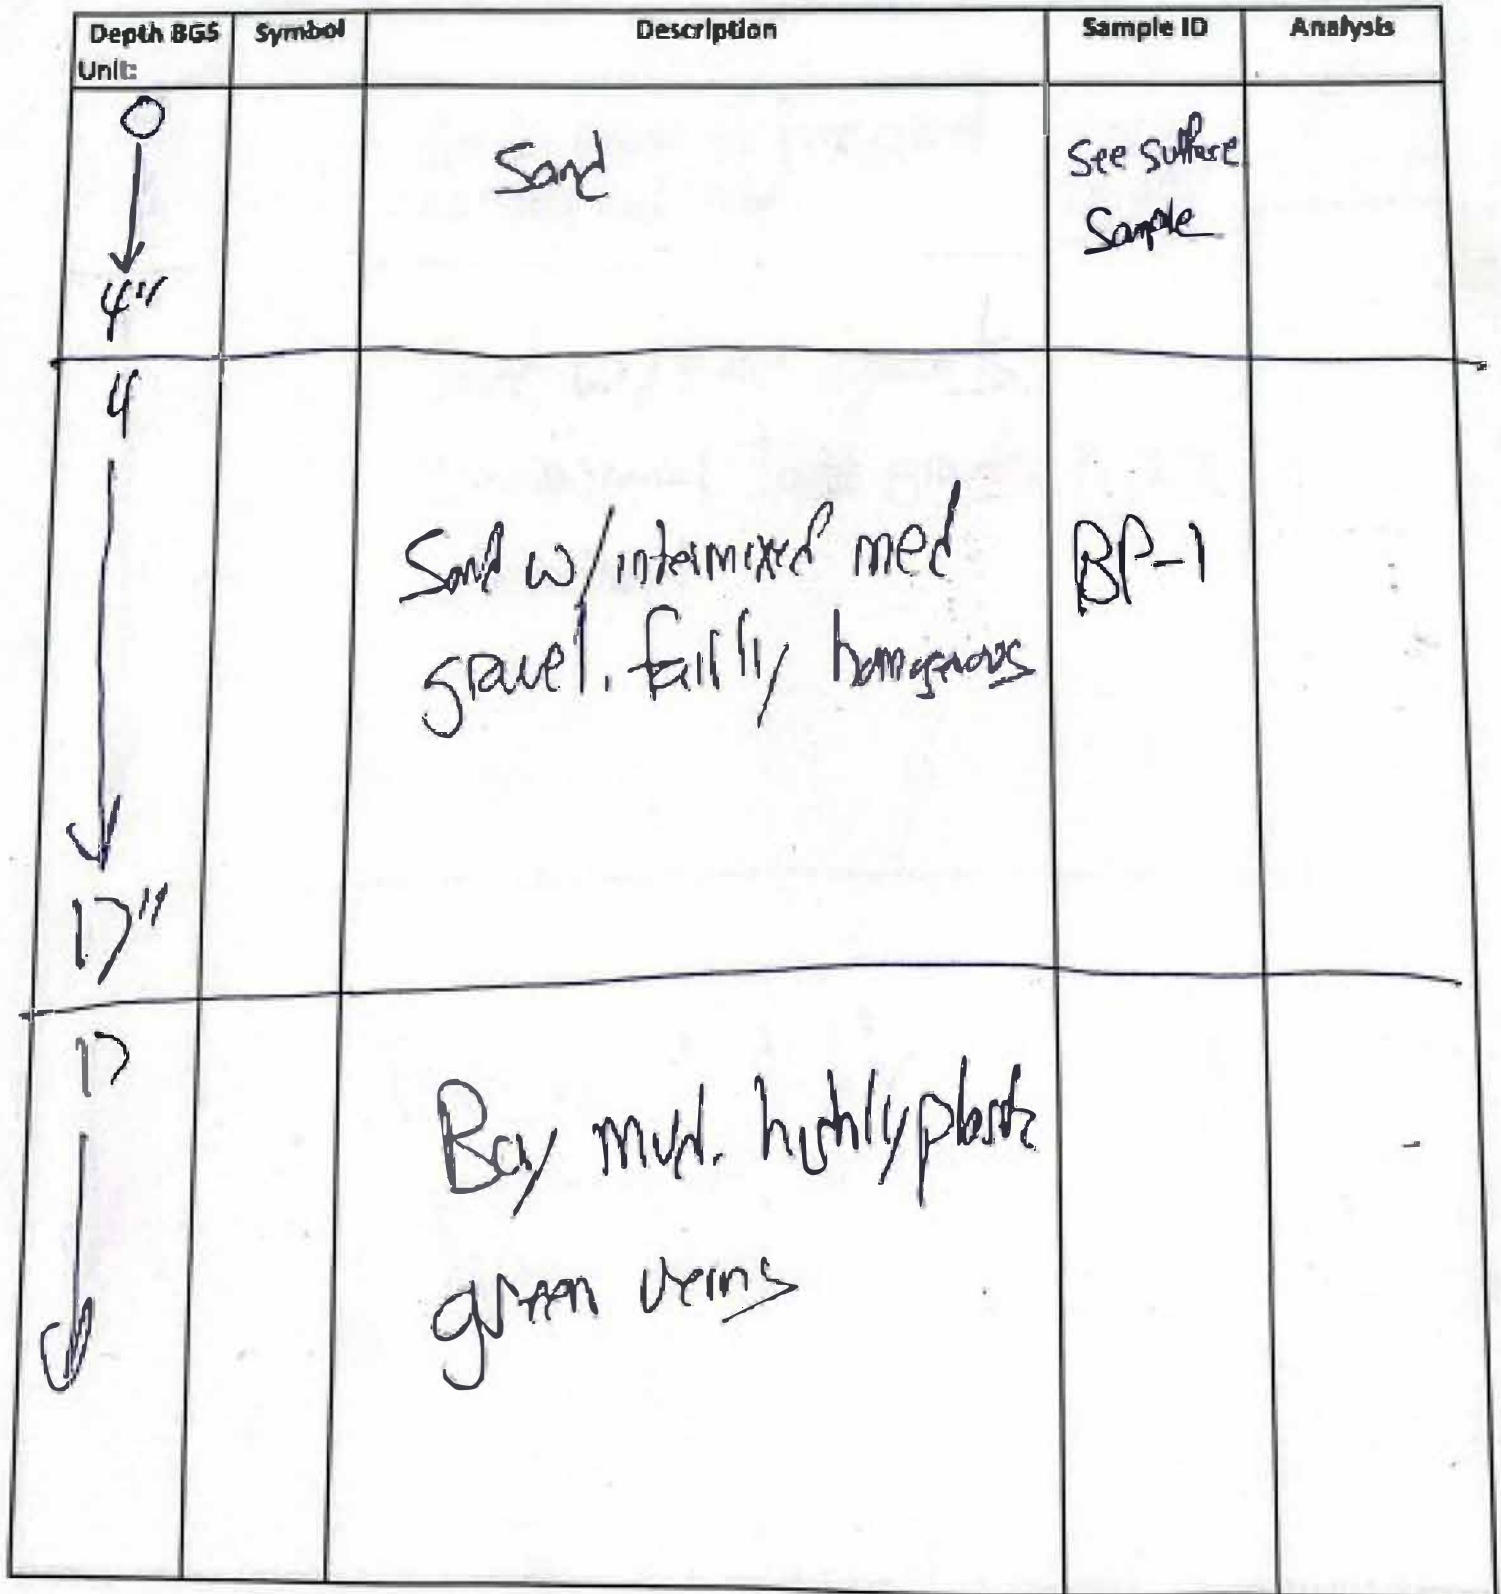 Depth BGS Symbol Description Sample ID Analysis
Unit:
0
Sand
See surface
Sample
4"
4
Sand w/intermixed med
BP-1
gravel. fairly homogenous
17"
17
Bay mud. highly plastic
green veins